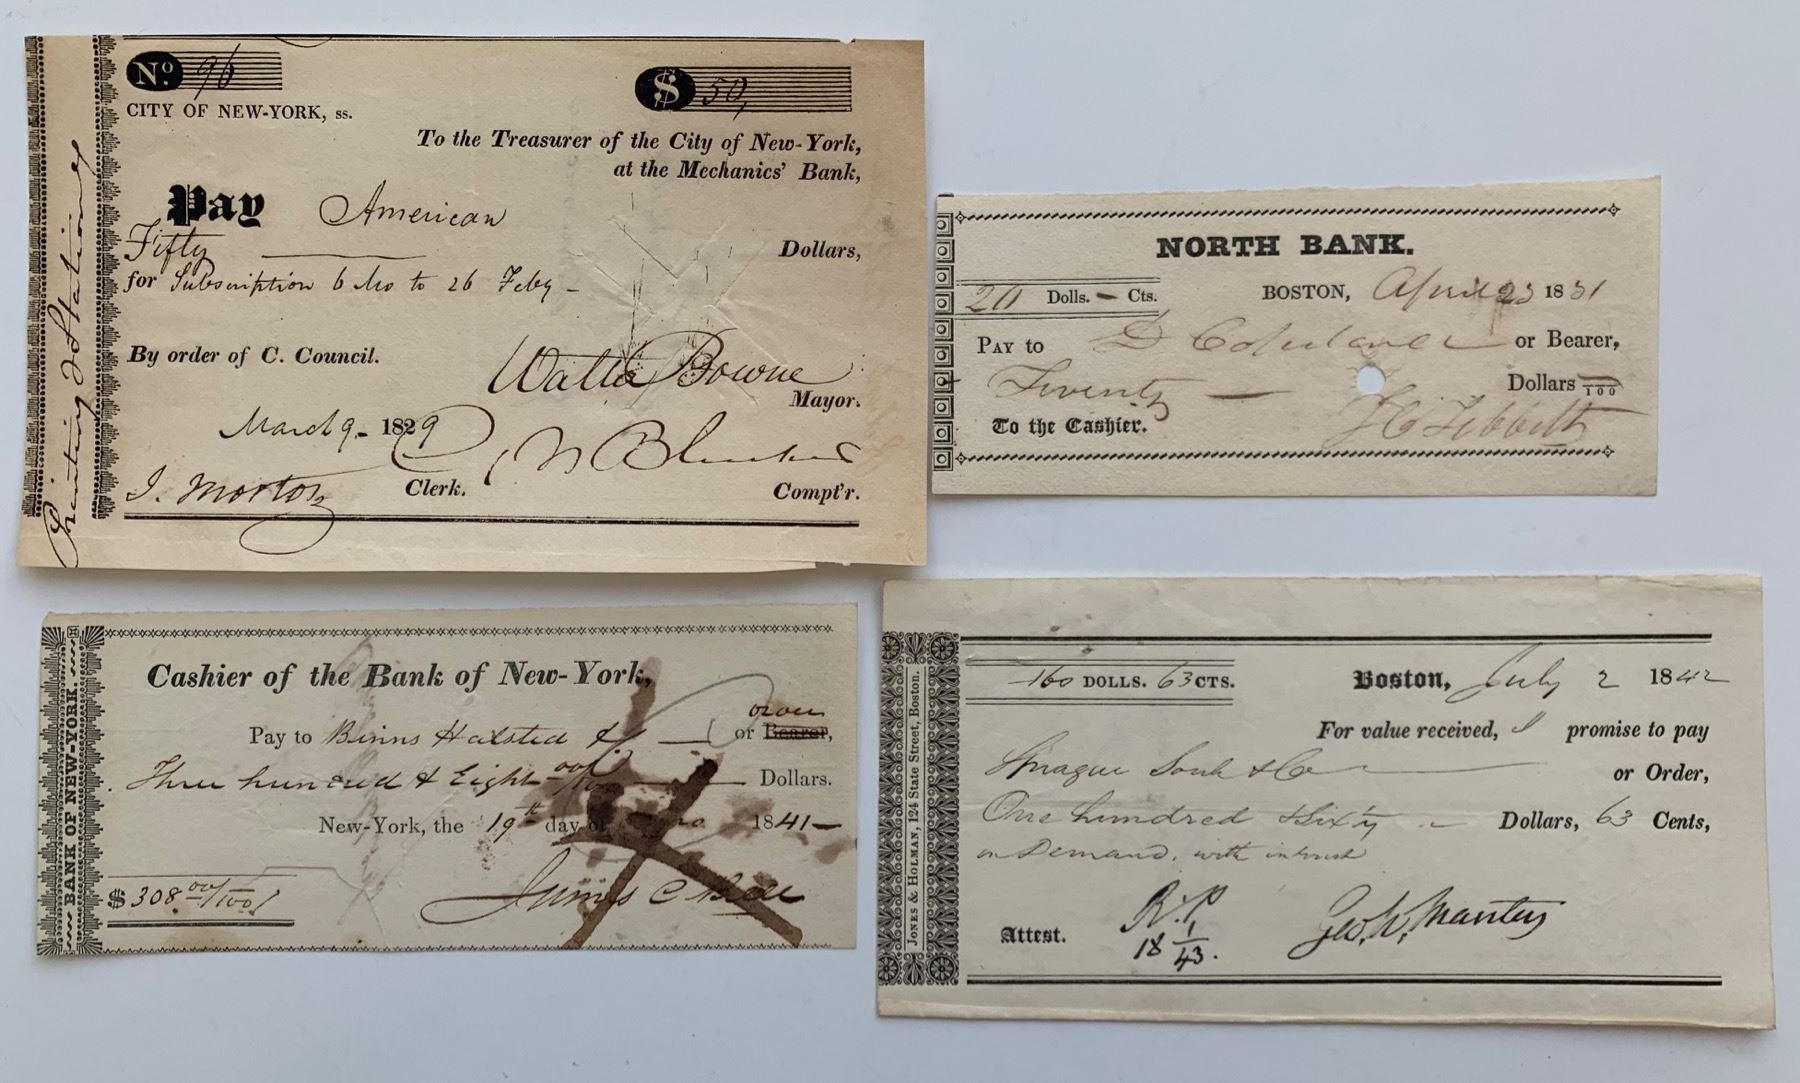 Printing & Stationery
No. 96
$ 50,
CITY OF NEW-YORK, ss.
To the Treasurer of the City of New-York,
at the Mechanics' Bank,
Pay American
Fifty Dollars,
for Subscription 6 Mo to 26 Feby -
By order of C. Council.
Walter Bowne
Mayor.
March 9 - 1829
J. Morton Clerk. Compt'r.
NORTH BANK.
20 Dolls. - Cts. BOSTON, April 23 1831
PAY to or Bearer,
Twenty - Dollars 100
To the Cashier.
BANK OF NEW-YORK.
Cashier of the Bank of New-York,
order
Pay to Binns Halsted & or Bearer,
Three hundred & Eight 00/100 Dollars.
New-York, the 19th day of 1841-
$ 308 00/100
James C
JONES & HOLMAN, 124 State Street, Boston.
160 DOLLS. 63 CTS. Boston, July 2 1842
For value received, I promise to pay
Sprague Soule & Co or Order,
One hundred & Sixty - Dollars, 63 Cents,
on Demand, with interest
Attest. R.P Geo. W.
18 1/43.